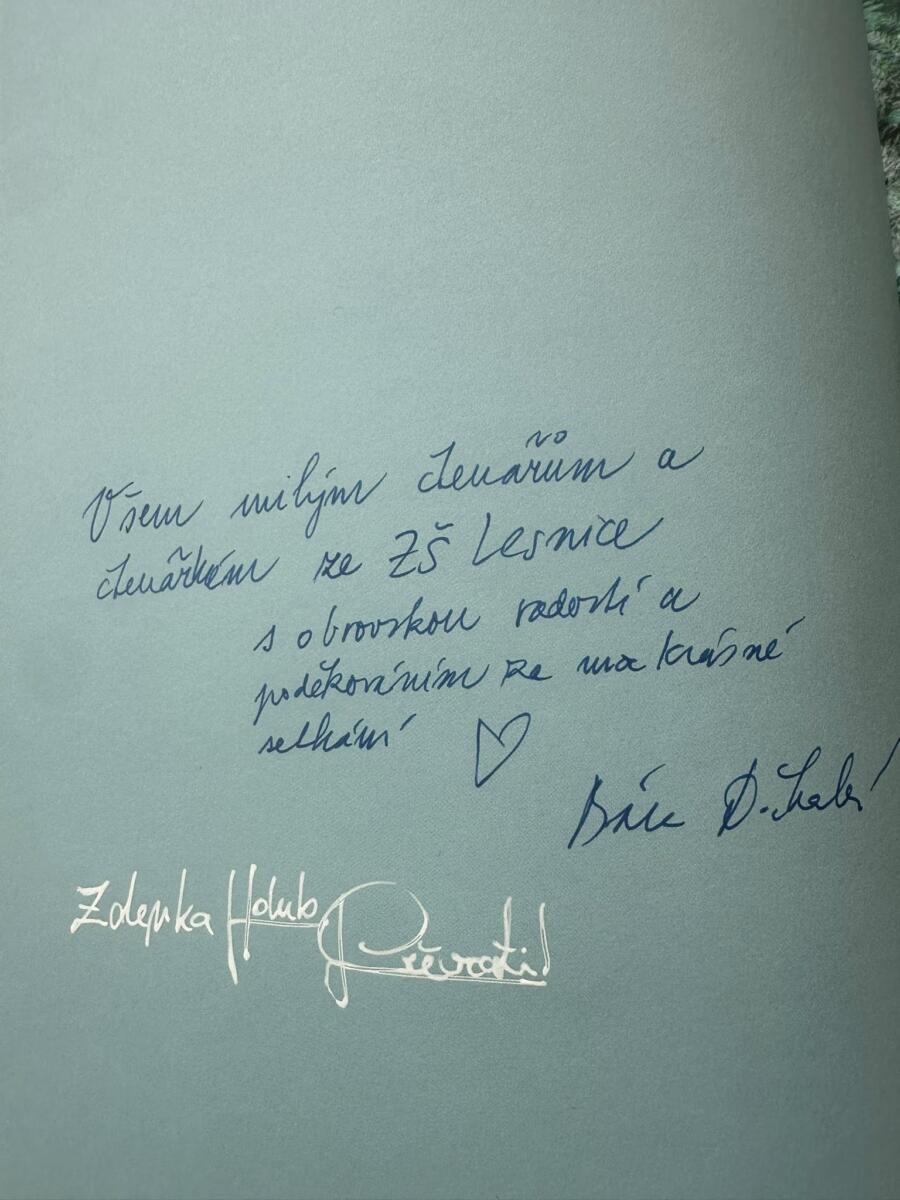 Všem milým čtenářům a
čtenářkám ze ZŠ Lesnice
s obrovskou radostí a
poděkováním za moc krásné
setkání
Bára
Zdenka Holub Převrátil